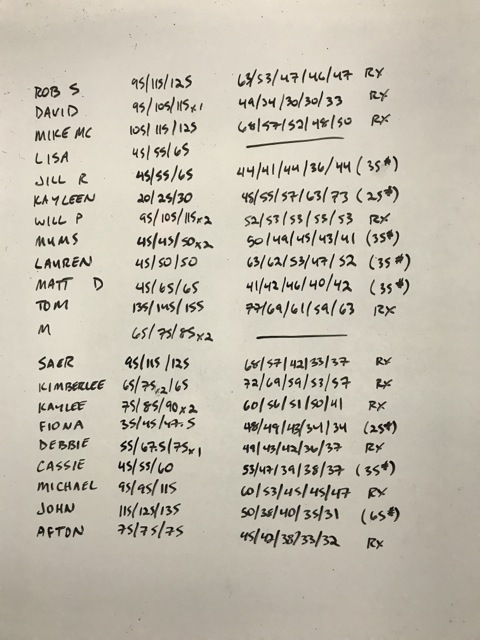 ROB S 95/115/125 63/53/47/46/47 RX
DAVID 95/105/115x1 49/34/30/30/33 RX
MIKE MC 105/115/125 68/57/52/48/50 RX
LISA 45/55/65
JILL R 45/55/65 44/41/44/36/44 (35#)
KAYLEEN 20/25/30 45/55/57/63/73 (25#)
WILL P 95/105/115x2 52/53/53/55/53 RX
MUMS 45/45/50x2 50/49/45/43/41 (35#)
LAUREN 45/50/50 63/62/53/47/52 (35#)
MATT D 45/65/65 41/42/46/40/42 (35#)
TOM 135/145/155 77/69/61/59/63 RX
M 65/75/85x2
SAER 95/115/125 68/57/42/33/37 RX
KIMBERLEE 65/75x2/65 72/69/59/53/57 RX
KAYLEE 75/85/90x2 60/56/51/50/41 RX
FIONA 35/45/47.5 48/49/43/34/34 (25#)
DEBBIE 55/67.5/75x1 49/43/42/36/37 RX
CASSIE 45/55/60 53/47/39/38/37 (35#)
MICHAEL 95/95/115 60/53/45/45/47 RX
JOHN 115/125/135 50/38/40/35/31 (65#)
AFTON 75/75/75 45/42/38/33/32 RX